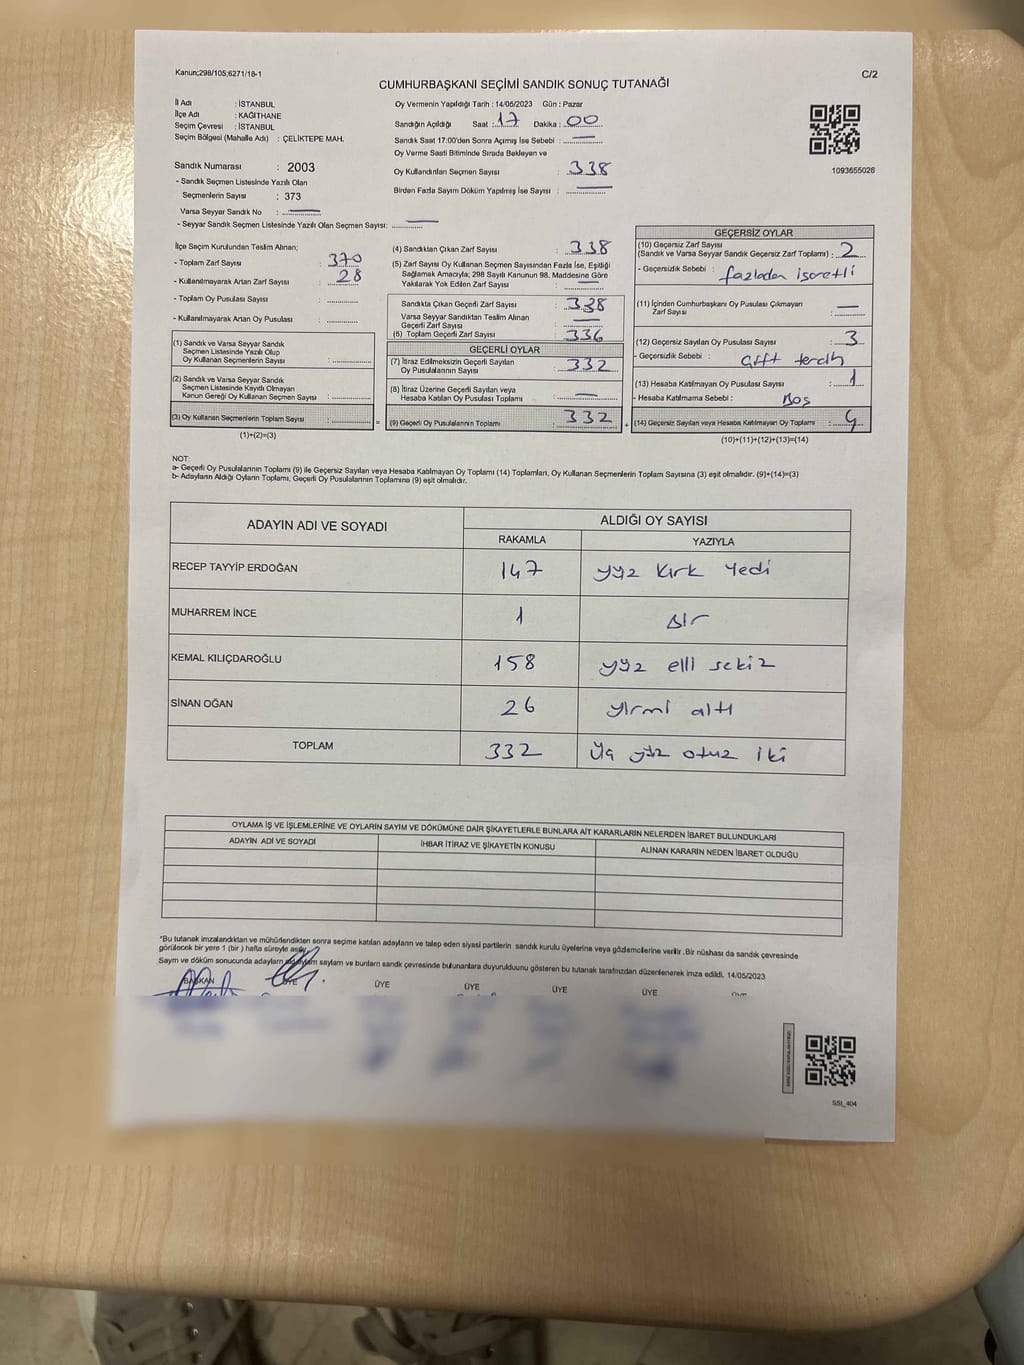 Kanun;298/105;6271/18-1
C/2
CUMHURBAŞKANI SEÇİMİ SANDIK SONUÇ TUTANAĞI
İl Adı : İSTANBUL
İlçe Adı : KAĞITHANE
Seçim Çevresi : İSTANBUL
Seçim Bölgesi (Mahalle Adı) : ÇELİKTEPE MAH.
Sandık Numarası : 2003
- Sandık Seçmen Listesinde Yazılı Olan
Seçmenlerin Sayısı : 373
Varsa Seyyar Sandık No :
- Seyyar Sandık Seçmen Listesinde Yazılı Olan Seçmen Sayısı:
Oy Vermenin Yapıldığı Tarih : 14/05/2023 Gün : Pazar
Sandığın Açıldığı Saat : 17 Dakika : 00
Sandık Saat 17:00'den Sonra Açılmış İse Sebebi :
Oy Verme Saati Bitiminde Sırada Bekleyen ve
Oy Kullandırılan Seçmen Sayısı : 338
Birden Fazla Sayım Döküm Yapılmış İse Sayısı :
1093655028
İlçe Seçim Kurulundan Teslim Alınan;
- Toplam Zarf Sayısı : 370
- Kullanılmayarak Artan Zarf Sayısı : 28
- Toplam Oy Pusulası Sayısı :
- Kullanılmayarak Artan Oy Pusulası :
(1) Sandık ve Varsa Seyyar Sandık
Seçmen Listesinde Yazılı Olup
Oy Kullanan Seçmenlerin Sayısı :
(2) Sandık ve Varsa Seyyar Sandık
Seçmen Listesinde Kayıtlı Olmayan
Kanun Gereği Oy Kullanan Seçmen Sayısı :
(3) Oy Kullanan Seçmenlerin Toplam Sayısı :
(1)+(2)=(3)
(4) Sandıktan Çıkan Zarf Sayısı : 338
(5) Zarf Sayısı Oy Kullanan Seçmen Sayısından Fazla İse, Eşitliği
Sağlamak Amacıyla; 298 Sayılı Kanunun 98. Maddesine Göre
Yakılarak Yok Edilen Zarf Sayısı :
Sandıkta Çıkan Geçerli Zarf Sayısı : 338
Varsa Seyyar Sandıktan Teslim Alınan
Geçerli Zarf Sayısı :
(6) Toplam Geçerli Zarf Sayısı : 336
GEÇERLİ OYLAR
(7) İtiraz Edilmeksizin Geçerli Sayılan
Oy Pusulalarının Sayısı : 332
(8) İtiraz Üzerine Geçerli Sayılan veya
Hesaba Katılan Oy Pusulası Toplamı :
= (9) Geçerli Oy Pusulalarının Toplamı : 332 +
GEÇERSİZ OYLAR
(10) Geçersiz Zarf Sayısı
(Sandık ve Varsa Seyyar Sandık Geçersiz Zarf Toplamı) : 2
- Geçersizlik Sebebi : fazladan işaretli
(11) İçinden Cumhurbaşkanı Oy Pusulası Çıkmayan
Zarf Sayısı :
(12) Geçersiz Sayılan Oy Pusulası Sayısı : 3
- Geçersizlik Sebebi : çift tercih
(13) Hesaba Katılmayan Oy Pusulası Sayısı : 1
- Hesaba Katılmama Sebebi : Boş
(14) Geçersiz Sayılan veya Hesaba Katılmayan Oy Toplamı :
(10)+(11)+(12)+(13)=(14)
NOT:
a- Geçerli Oy Pusulalarının Toplamı (9) ile Geçersiz Sayılan veya Hesaba Katılmayan Oy Toplamı (14) Toplamları, Oy Kullanan Seçmenlerin Toplam Sayısına (3) eşit olmalıdır. (9)+(14)=(3)
b- Adayların Aldığı Oyların Toplamı, Geçerli Oy Pusulalarının Toplamına (9) eşit olmalıdır.
ADAYIN ADI VE SOYADI
ALDIĞI OY SAYISI
RAKAMLA YAZIYLA
RECEP TAYYİP ERDOĞAN 147 yüz kırk yedi
MUHARREM İNCE 1 Bir
KEMAL KILIÇDAROĞLU 158 yüz elli sekiz
SİNAN OĞAN 26 yirmi altı
TOPLAM 332 Üç yüz otuz iki
OYLAMA İŞ VE İŞLEMLERİNE VE OYLARIN SAYIM VE DÖKÜMÜNE DAİR ŞİKAYETLERLE BUNLARA AİT KARARLARIN NELERDEN İBARET BULUNDUKLARI
ADAYIN ADI VE SOYADI İHBAR İTİRAZ VE ŞİKAYETİN KONUSU ALINAN KARARIN NEDEN İBARET OLDUĞU
*Bu tutanak imzalandıktan ve mühürlendikten sonra seçime katılan adayların ve talep eden siyasi partilerin sandık kurulu üyelerine veya gözlemcilerine verilir. Bir nüshası da sandık çevresinde
görülecek bir yere 1 (bir ) hafta süreyle asılır.
Sayım ve döküm sonucunda adayların sayıların ve bunların sandık çevresinde bulunanlara duyurulduunu gösteren bu tutanak tarafımızdan düzenlenerek imza edildi. 14/05/2023
BAŞKAN ÜYE ÜYE ÜYE ÜYE ÜYE ÜYE
SSI_404